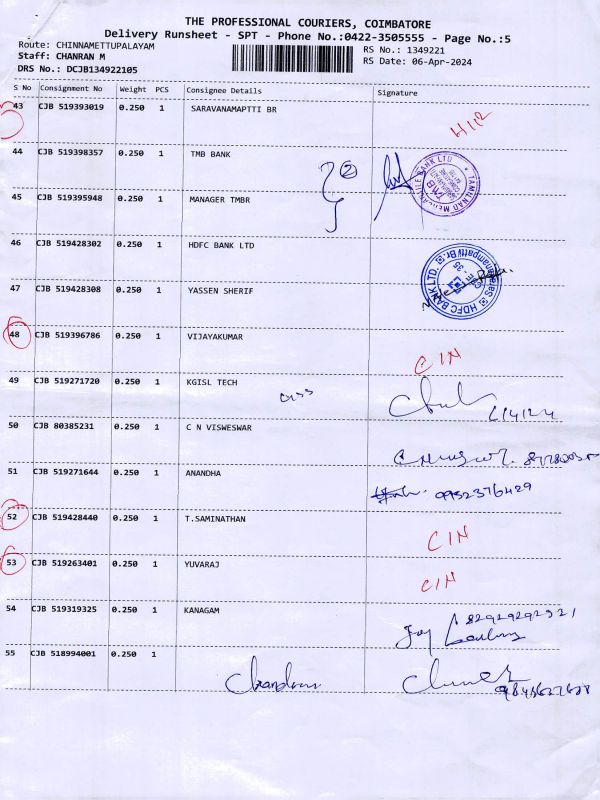 THE PROFESSIONAL COURIERS, COIMBATORE
Delivery Runsheet - SPT - Phone No.:0422-3505555 - Page No.:5
Route: CHINNAMETTUPALAYAM
RS No.: 1349221
Staff: CHANRAN M
RS Date: 06-Apr-2024
DRS No.: DCJB134922105
S No Consignment No Weight PCS Consignee Details Signature
43 CJB 519393019 0.250 1 SARAVANAMAPTTI BR
44 CJB 519398357 0.250 1 TMB BANK
45 CJB 519395948 0.250 1 MANAGER TMBR
46 CJB 519428302 0.250 1 HDFC BANK LTD
47 CJB 519428308 0.250 1 YASSEN SHERIF
48 CJB 519396786 0.250 1 VIJAYAKUMAR
CIN
49 CJB 519271720 0.250 1 KGISL TECH
6/4/24
50 CJB 80385231 0.250 1 C N VISWESWAR
51 CJB 519271644 0.250 1 ANANDHA
09952376429
52 CJB 519428440 0.250 1 T.SAMINATHAN
CIN
53 CJB 519263401 0.250 1 YUVARAJ
CIN
54 CJB 519319325 0.250 1 KANAGAM
55 CJB 518994001 0.250 1